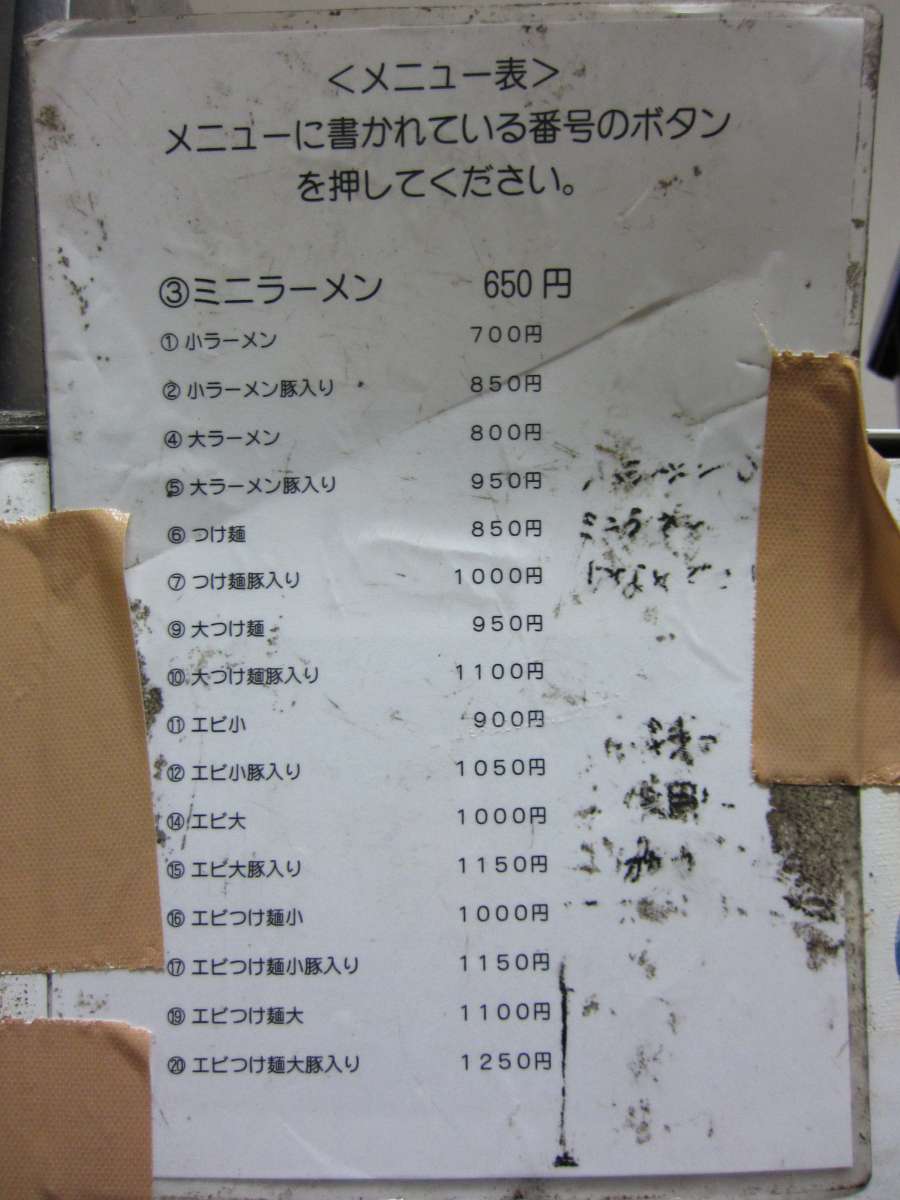 <メニュー表>
メニューに書かれている番号のボタン
を押してください。
③ミニラーメン 650円
① 小ラーメン 700円
② 小ラーメン豚入り 850円
④ 大ラーメン 800円
⑤ 大ラーメン豚入り 950円
⑥ つけ麺 850円
⑦ つけ麺豚入り 1000円
⑨ 大つけ麺 950円
⑩ 大つけ麺豚入り 1100円
⑪ エビ小 900円
⑫ エビ小豚入り 1050円
⑭ エビ大 1000円
⑮ エビ大豚入り 1150円
⑯ エビつけ麺小 1000円
⑰ エビつけ麺小豚入り 1150円
⑲ エビつけ麺大 1100円
⑳ エビつけ麺大豚入り 1250円